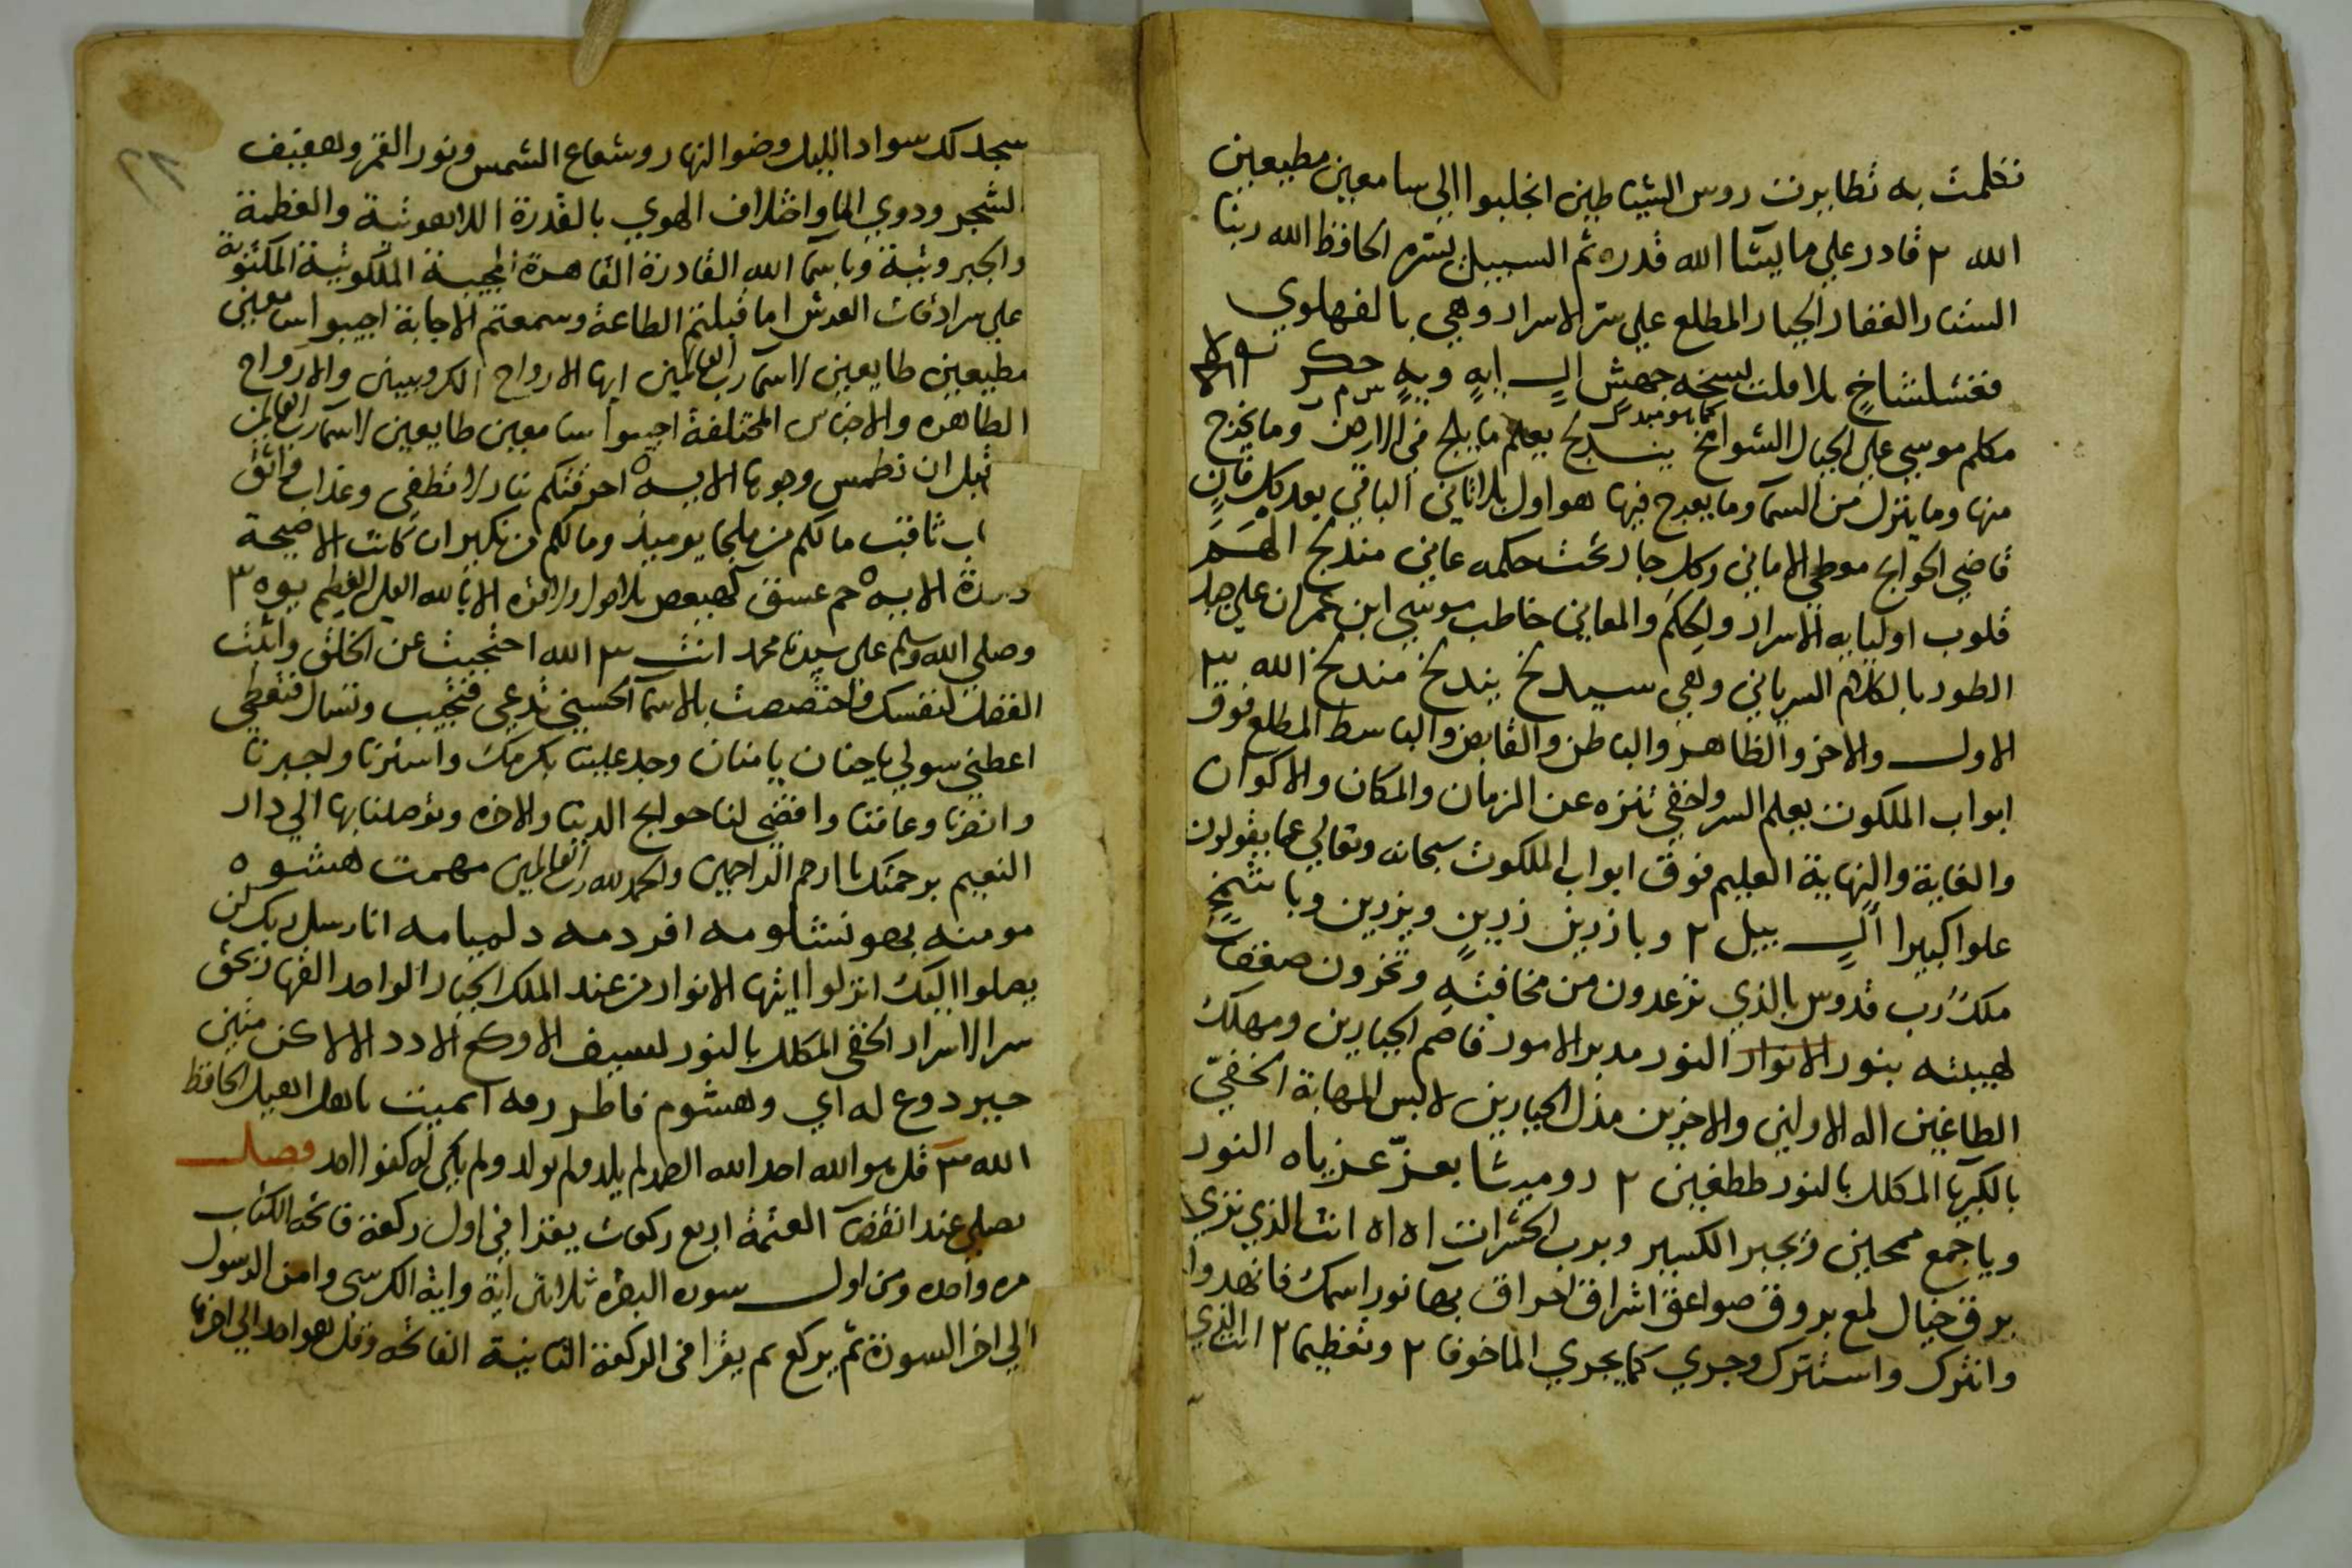 تكلمت به تطايرت روس الشياطين انجلبوا الي سامعين مطيعين
الله ٢ قادر علي ما يشا الله قدره ثم السبيل يسره الحافظ الله ربنا
الستار الغفار الجبار المطلع علي ستر الاسرار وهي بالفهلوي
جهش ال ايه ويه
مكلم موسي علي الجبال الشوامخ يعلم ما يلج في الارض وما يخرج
منها وما ينزل من السما وما يعرج فيها هو اول بلا ثاني الباقي بعد كل فان
قاضي الحوايج معطي الاماني وكل جار تحت حكمه عاني مندلخ الهم
قلوب اوليايه الاسرار والحكم والمعاني خاطب موسي ابن عمران علي جبل
الطور بالكلام السرياني وهي سيدلخ يندلخ مندلخ الله ٣
الاول والاخر والظاهر والباطن والقابض والباسط المطلع فوق
ابواب الملكوت يعلم السر واخفي تنزه عن الزمان والمكان والاكوان
والغاية والنهاية العليم فوق ابواب الملكوت سبحانه وتعالي عما يقولون
علوا كبيرا ال بيل ٢ وبا زرين زرين ويزرين وبا
ملك رب قدوس بالذي ترعدون من مخافته وتخرون صعقات
لهيبته بنور الانوار النور مدبر الامور قاصم الجبارين ومهلك
الطاغين اله الاولين والاخرين مذل الجبارين لابس المهابة الخفي
بالكبريا المكلل بالنور ططغين ٢ دوميرشا بعز عزياه النور
ويا جمع محين وبجبر الكسير وبرب الحشرات اه اه انت الذي تزي
برق خيال لمع بروق صواعق اشراق احراق بها نور اسمك فانهدوا
وانترك واسشترك وجري كما يجري الما خوفا ٢ وتعظيما ٢ انت الذي
سجد لك سواد الليل وضو النهار وشعاع الشمس ونور القمر وهفيف
الشجر ودوي الما واختلاف الهوي بالقدرة اللاهوتية والعظمة
والجبروتية وباسما الله القادرة القاهرة المجيبة الملكوتية المكتوبة
علي سرادقات العرش اما قبلتم الطاعة وسمعتم الاجابة اجيبوا سامعين
مطيعين طايعين لاسما رب العالمين ايها الارواح الكروبيين والارواح
الطاهره والاجناس المختلفة اجيبوا سامعين طايعين لاسما رب العالمين
قبل ان نطمس وجوها الايه احرقتكم بنار لا تطفي وعذاب
اب ثاقب ما لكم من ملجا يوميذ وما لكم من نكير ان كانت الا صيحة
الايه حم عسق كهيعص بلا حول ولا قوة الا بالله العلي العظيم يوه ٣
وصلي الله وسلم علي سيدنا محمد انت ٣ الله احتجبت عن الخلق وانت
الفضل لنفسك فاختصصت بالاسما الحسني تدعي فتجيب وتسال فتعطي
اعطني سولي يا حنان يا منان وجد علينا بكرمك واسترنا واجبرنا
وانصرنا وعافنا واقضي لنا حوايج الدنيا والاخره وتوصلنا بها الي دار
النعيم برحمتك يا ارحم الراحمين والحمد لله رب العالمين مهمت هشوه
مومنه بهو نشلومه افردمه دلميامه انا رسل ربك لن
يصلوا اليك انزلوا ايتها الانوار من عند الملك الجبار الواحد القهار بحق
سر الاسرار الخفي المكلل بالنور لسيف الاوكح الادد الا
حبير دوع له اي وهشوم فاطر رمه اميت ياهل اهيل الحافظ
الله ٣ قل هو الله احد الله الصمد لم يلد ولم يولد ولم يكن له كفوا احد فصل
يصلي عند انقضا العتمة اربع ركعات يقرا في اول ركعة فاتحة الكتاب
مره واحده ومن اول سوره البقره ثلاثين اية واية الكرسي وامن الرسول
الي اخر السورة ثم يركع ثم يقرا في الركعة الثانية الفاتحه وقل هو احد الي اخرها